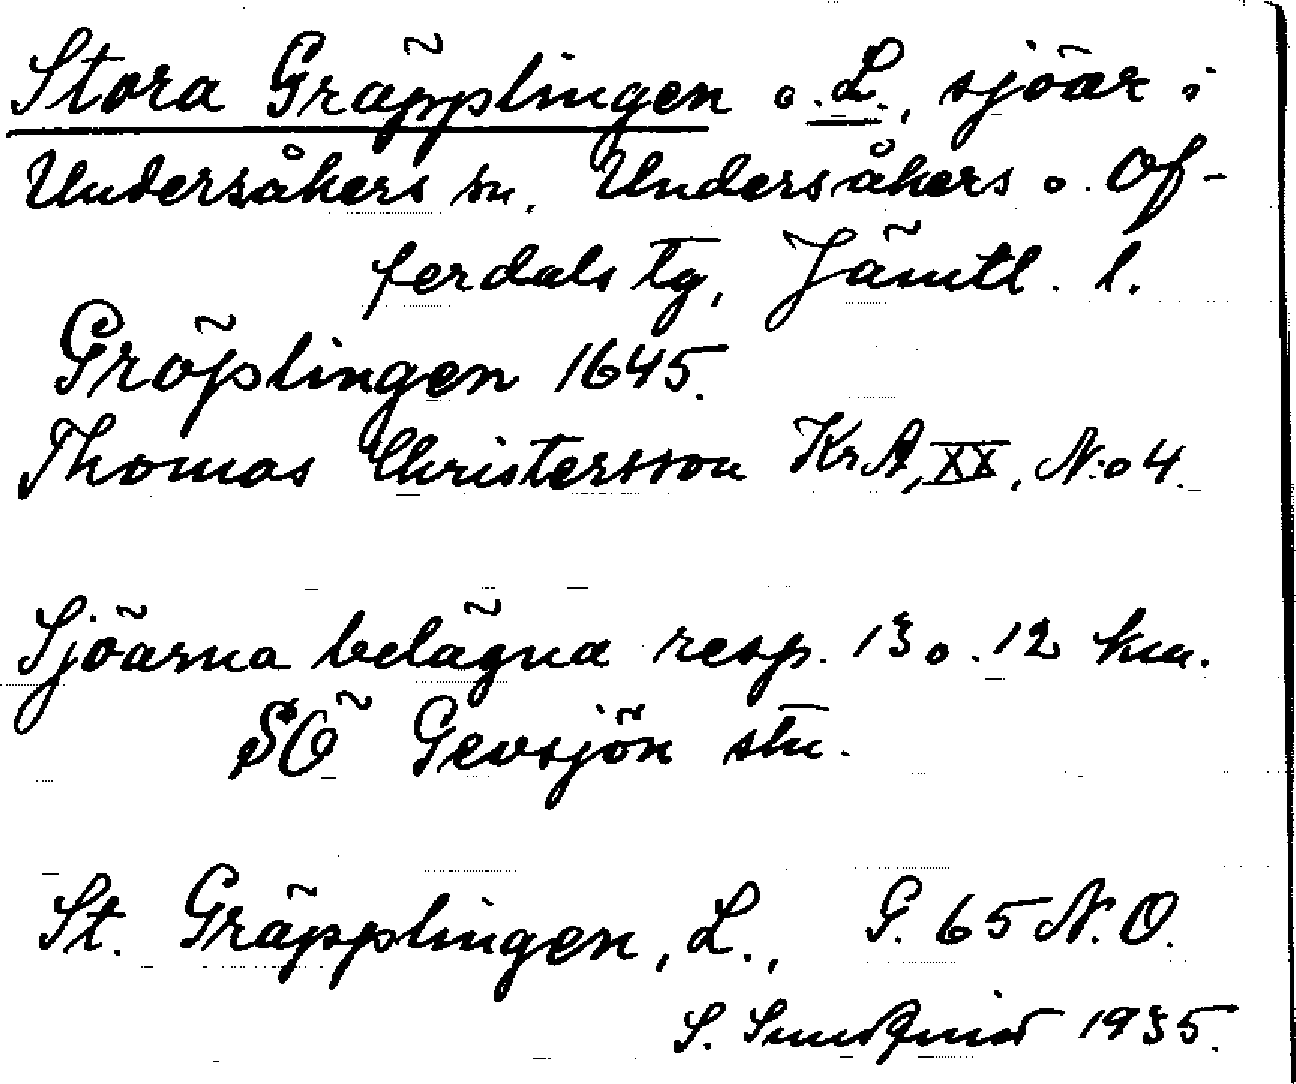 Stora Gräpplingen o. L., sjöar i
Undersåkers sn. Undersåkers o. Of-
ferdals tg, Jämtl. l.
Gröplingen 1645.
Thomas Christersson KrA, XX, N:o 4.
Sjöarna belägna resp. 13 o. 12 km.
SÖ Gevsjön stn.
St. Gräpplingen, L., G. 65 N.O.
S. Sundqvist 1935.